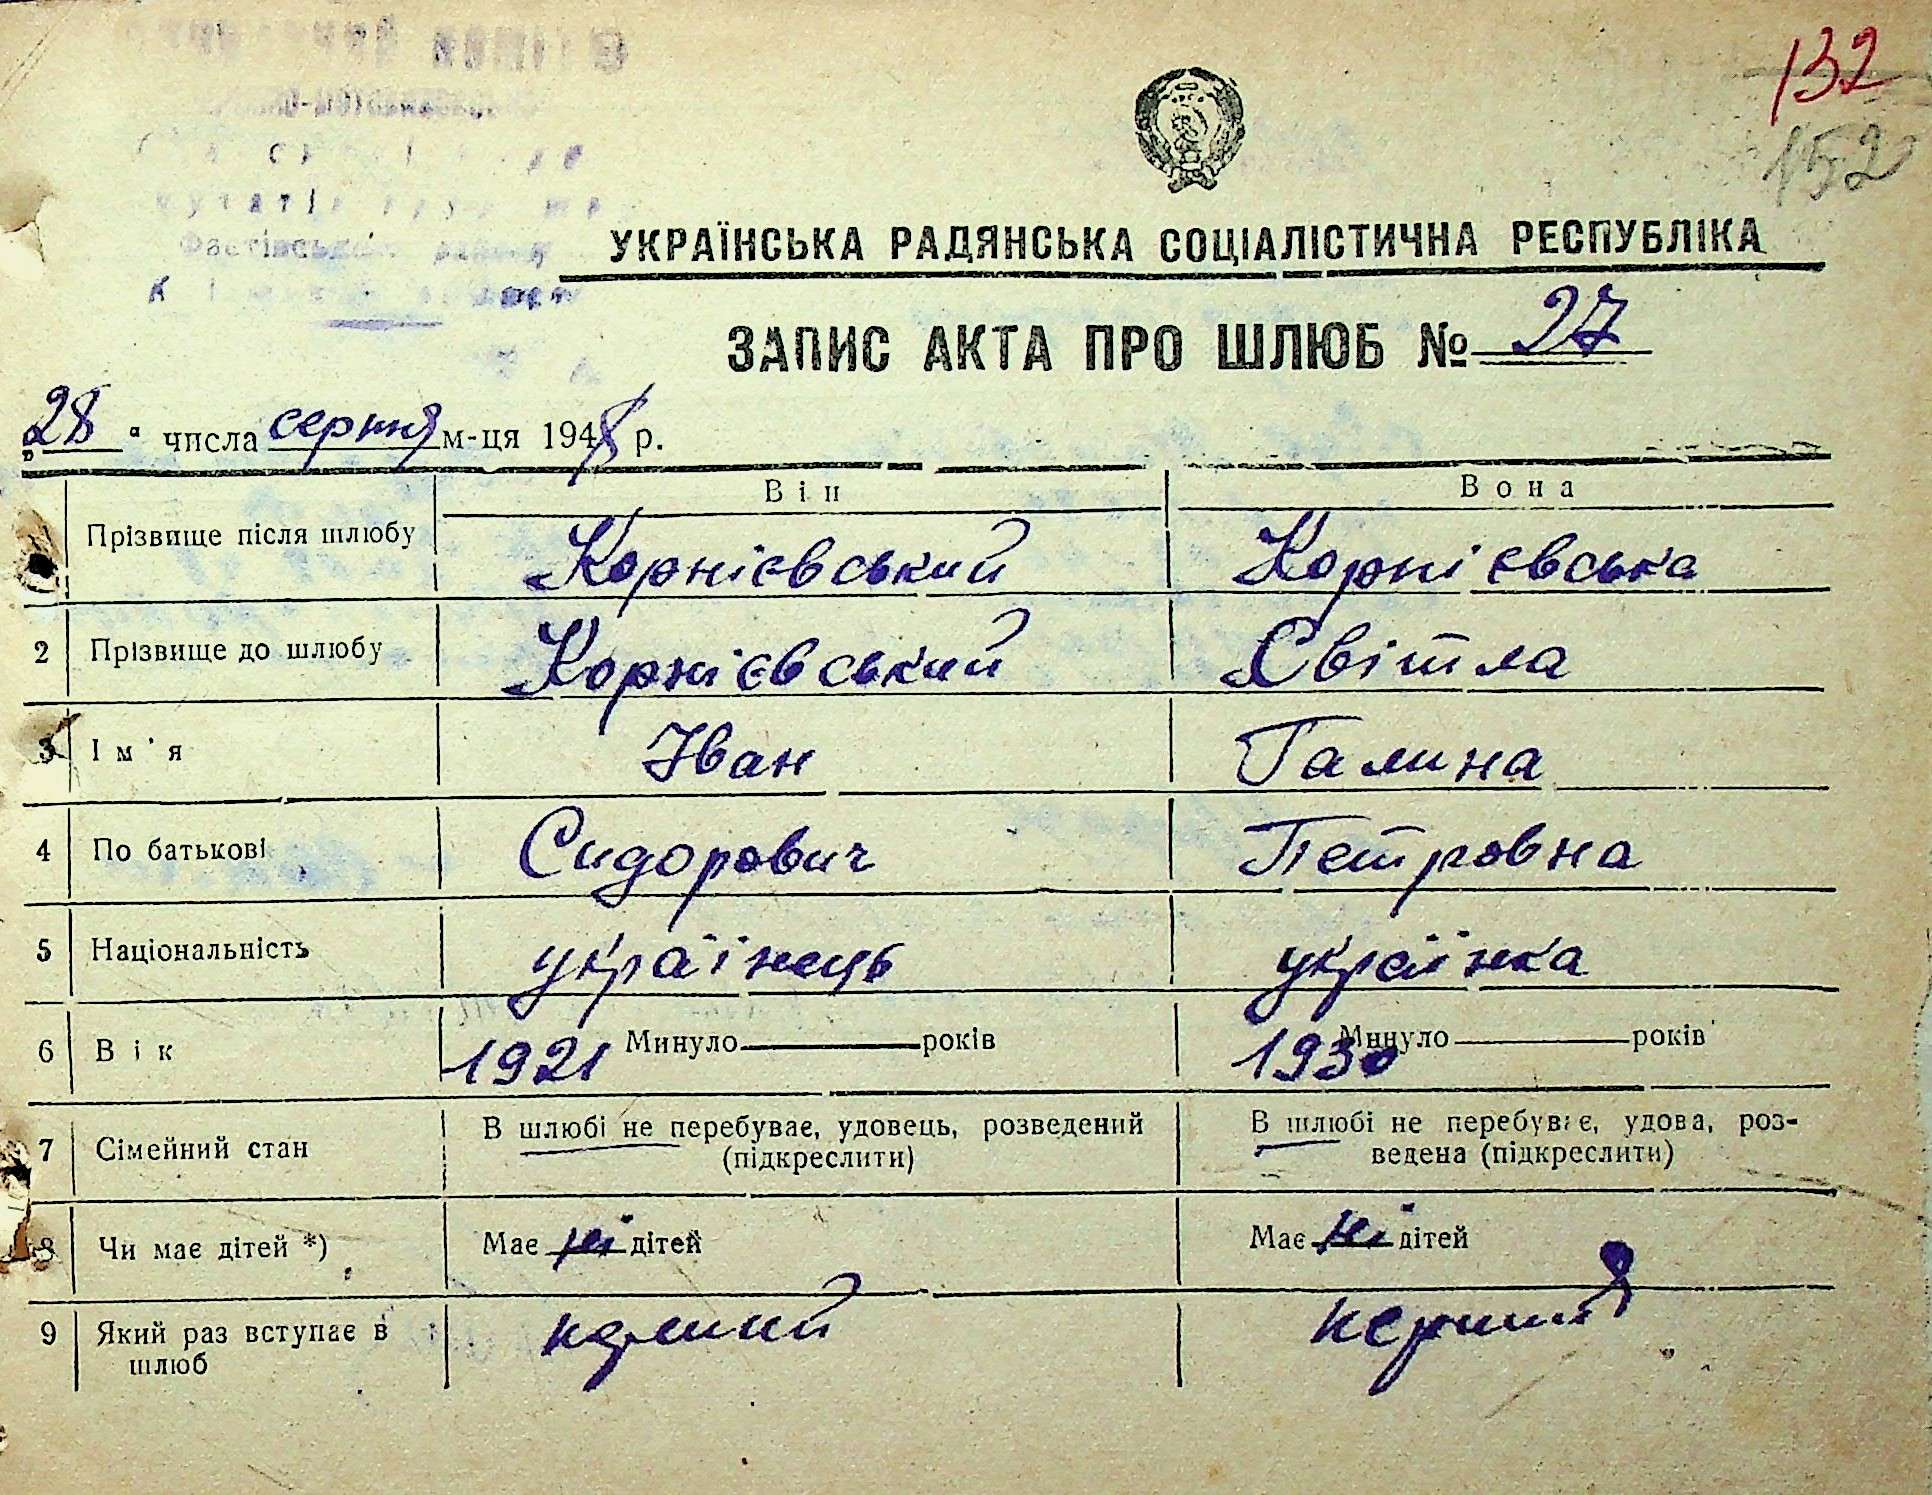 132
152
Фастівського району
УКРАЇНСЬКА РАДЯНСЬКА СОЦІАЛІСТИЧНА РЕСПУБЛІКА
ЗАПИС АКТА ПРО ШЛЮБ № 27
„28" числа серпня м-ця 1948 р.
Він Вона
Прізвище після шлюбу Корнієвський Корнієвська
2 Прізвище до шлюбу Корнієвський Світла
3 Ім'я Іван Галина
4 По батькові Сидорович Петровна
5 Національність українець українка
6 Вік 1921 Минуло років 1930 Минуло років
7 Сімейний стан В шлюбі не перебуває, удовець, розведений (підкреслити) В шлюбі не перебуває, удова, роз-
ведена (підкреслити)
8 Чи має дітей *) Має ні дітей Має ні дітей
9 Який раз вступає в шлюб перший